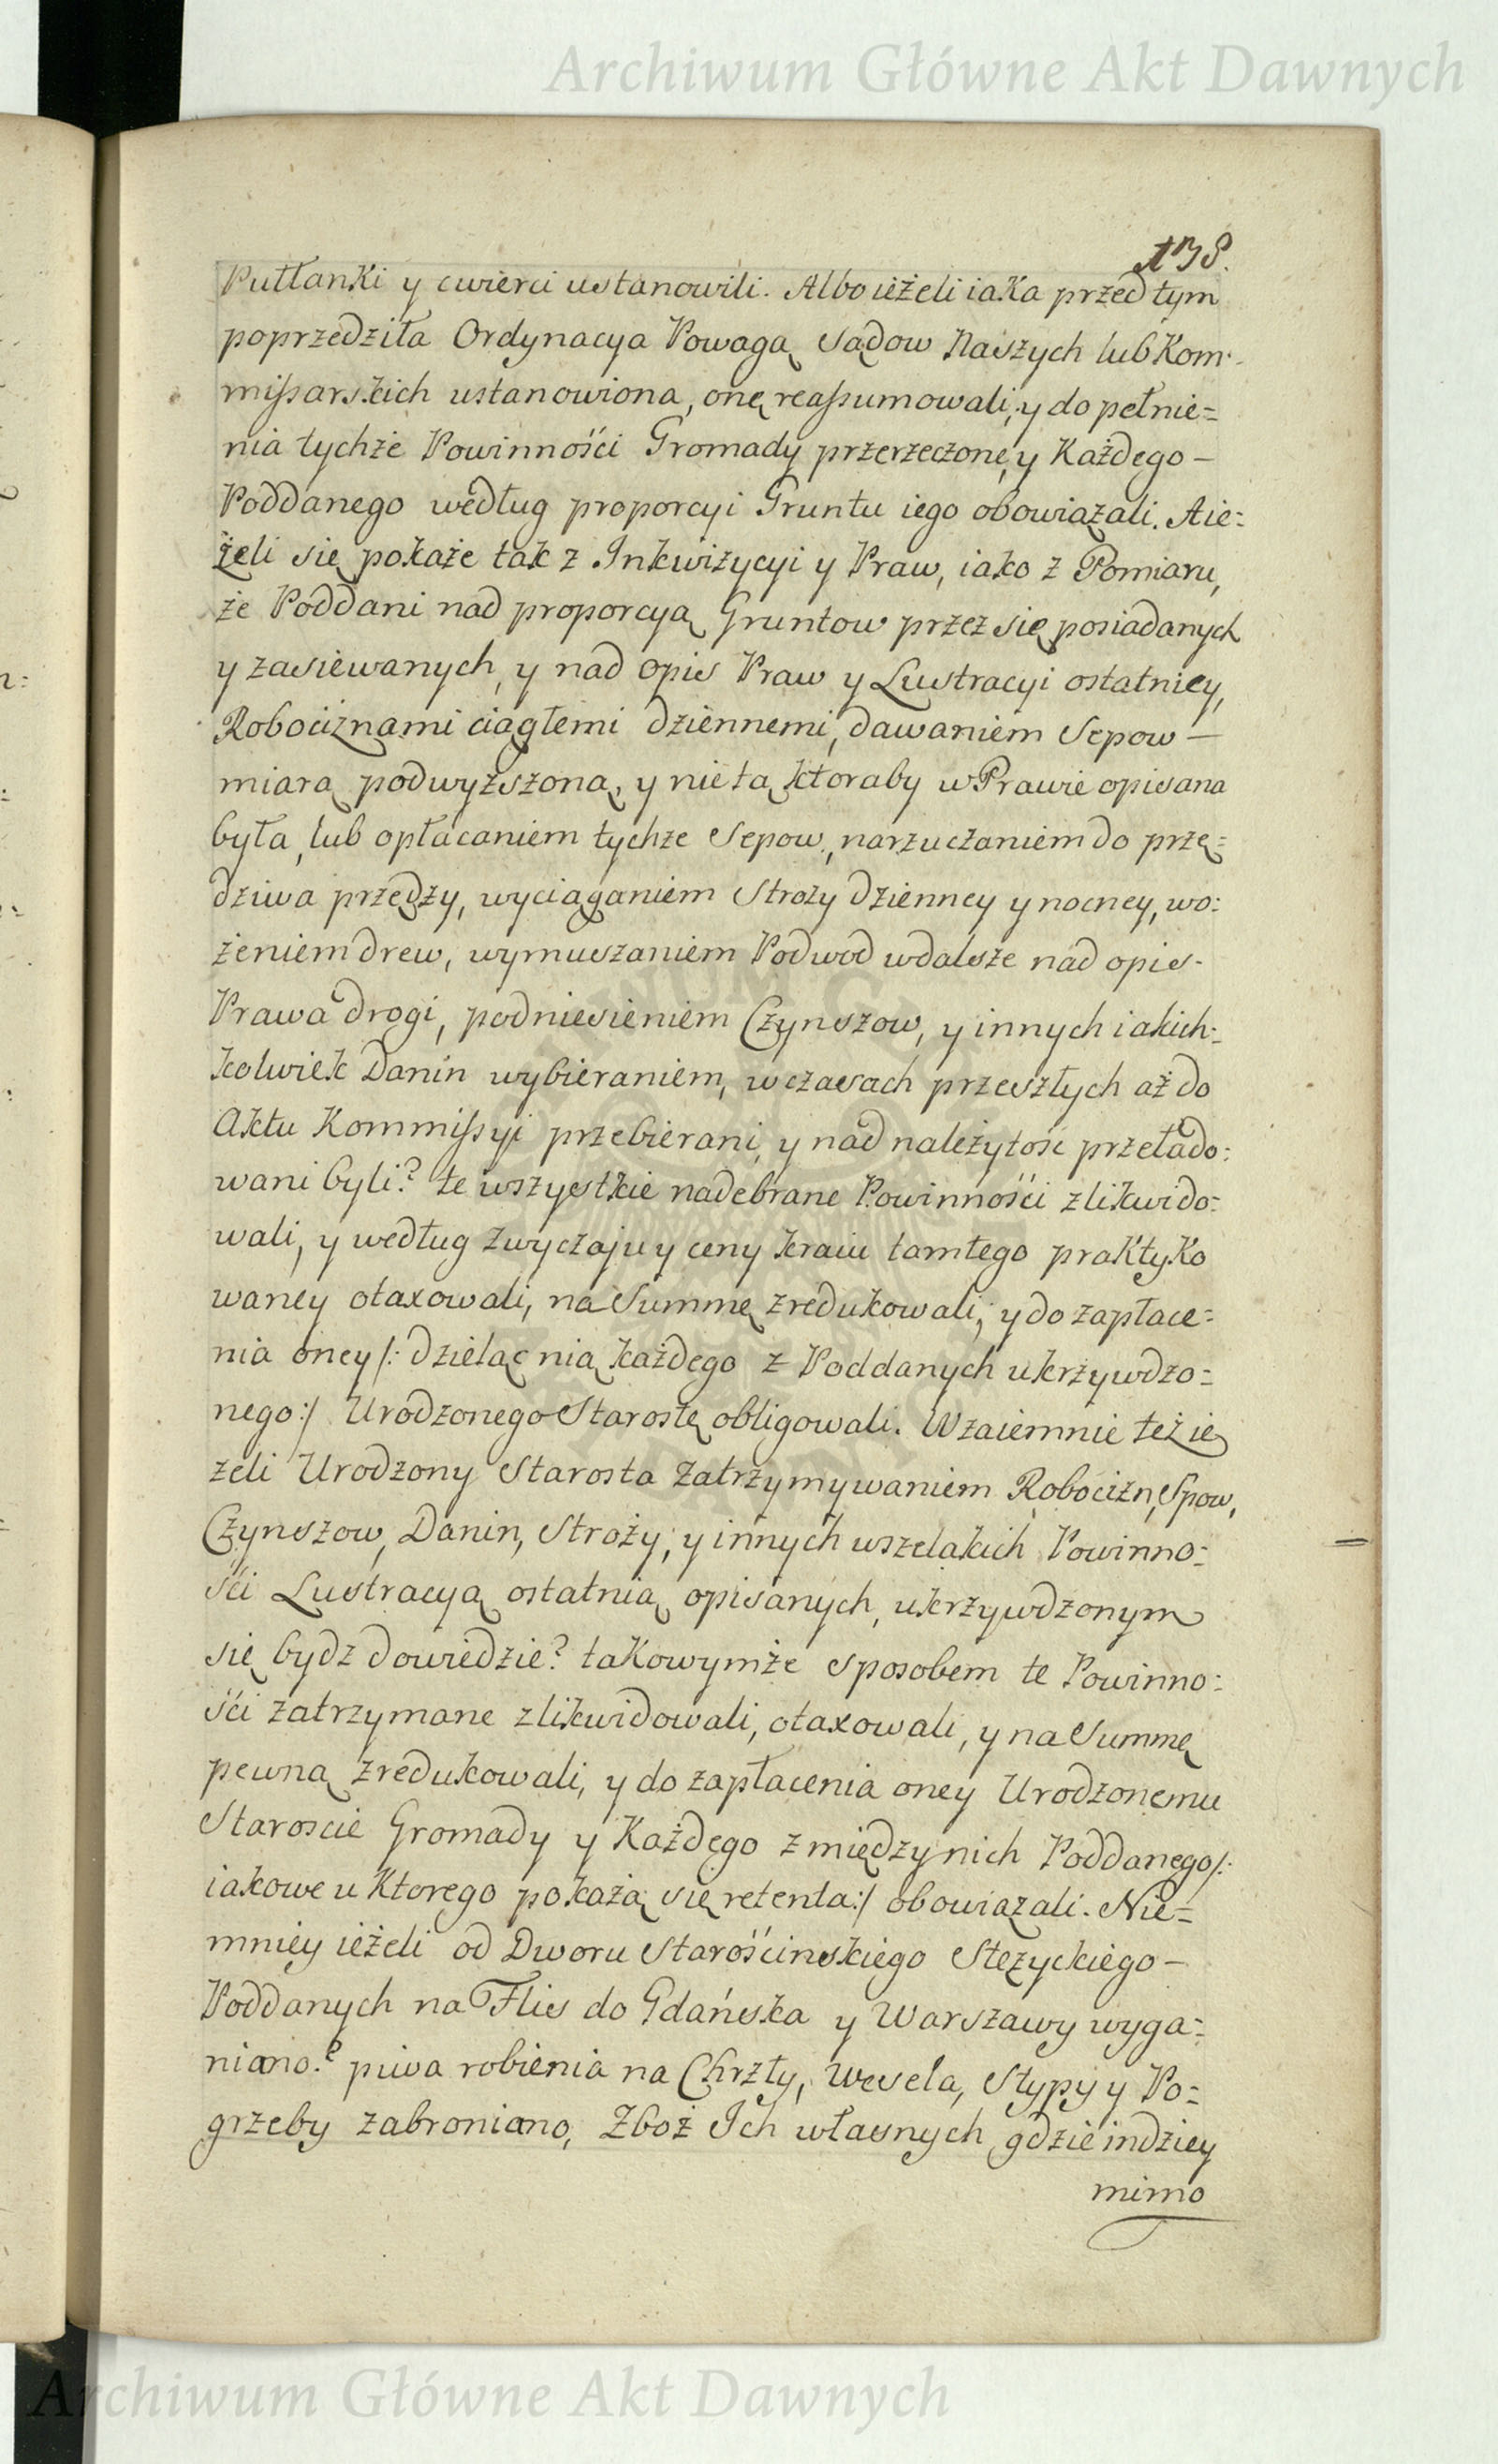 Archiwum Główne Akt Dawnych
138.
Pułłanki y cwierci ustanowili. Albo ieżeli iaka przed tym
poprzedziła Ordynacya Powagą Sądow Naszych lub Kom-
missarskich ustanowiona, onę reassumowali, y do pełnie=
nia tychże Powinności Gromady przerzeczone, y Każdego –
Poddanego według proporcyi Gruntu iego obowiązali. A ie=
żeli się pokaże tak z Inkwizycyi y Praw, iako z Pomiaru,
że Poddani nad proporcyą Gruntow przez się posiadanych
y zasiewanych, y nad opis Praw y Lustracyi ostatniey,
Robociznami ciągłemi dziennemi, dawaniem Sepow –
miarą podwyższoną, y nie tą ktoraby w Prawie opisana
była, lub opłacaniem tychże Sepow, narzuczaniem do przę=
dziwa przędzy, wyciąganiem Stroży dzienney y nocney, wo:
żeniem drew, wymuszaniem Podwod w dalsze nad opis-
Prawa drogi, podniesieniem Czynszow, y innych iakich:
kolwiek Danin wybieraniem, w czasach przeszłych aż do
Aktu Kommissyi przebierani, y nad należytość przełado:
wani byli? te wszystkie nadebrane Powinności zlikwido:
wali, y według zwyczaju y ceny kraiu tamtego praktyko
waney otaxowali, na Summę zredukowali, y do zapłace=
nia oney /: dzieląc nią każdego z Poddanych ukrzywdzo=
nego :/ Urodzonego Starostę obligowali. Wzaiemnie też ie
żeli Urodzony Starosta zatrzymywaniem Robocizn, Spow,
Czynszow, Danin, Stroży, y innych wszelakich Powinno:
ści Lustracyą ostatnią opisanych, ukrzywdzonym
się bydz dowiedzie? takowymże sposobem te Powinno:
ści zatrzymane zlikwidowali, otaxowali, y na Summę
pewną zredukowali, y do zapłacenia oney Urodzonemu
Staroscie Gromady y Każdego z między nich Poddanego /:
iakowe u Ktorego pokażą się retenta :/ obowiązali. Nie=
mniey ieżeli od Dworu Starościnskiego Stężyckiego –
Poddanych na Flis do Gdańska y Warszawy wyga=
niano? piwa robienia na Chrzty, Wesela, Stypy y Po=
grzeby zabroniano, Zboż Ich własnych gdzie indziey
mimo
Archiwum Główne Akt Dawnych